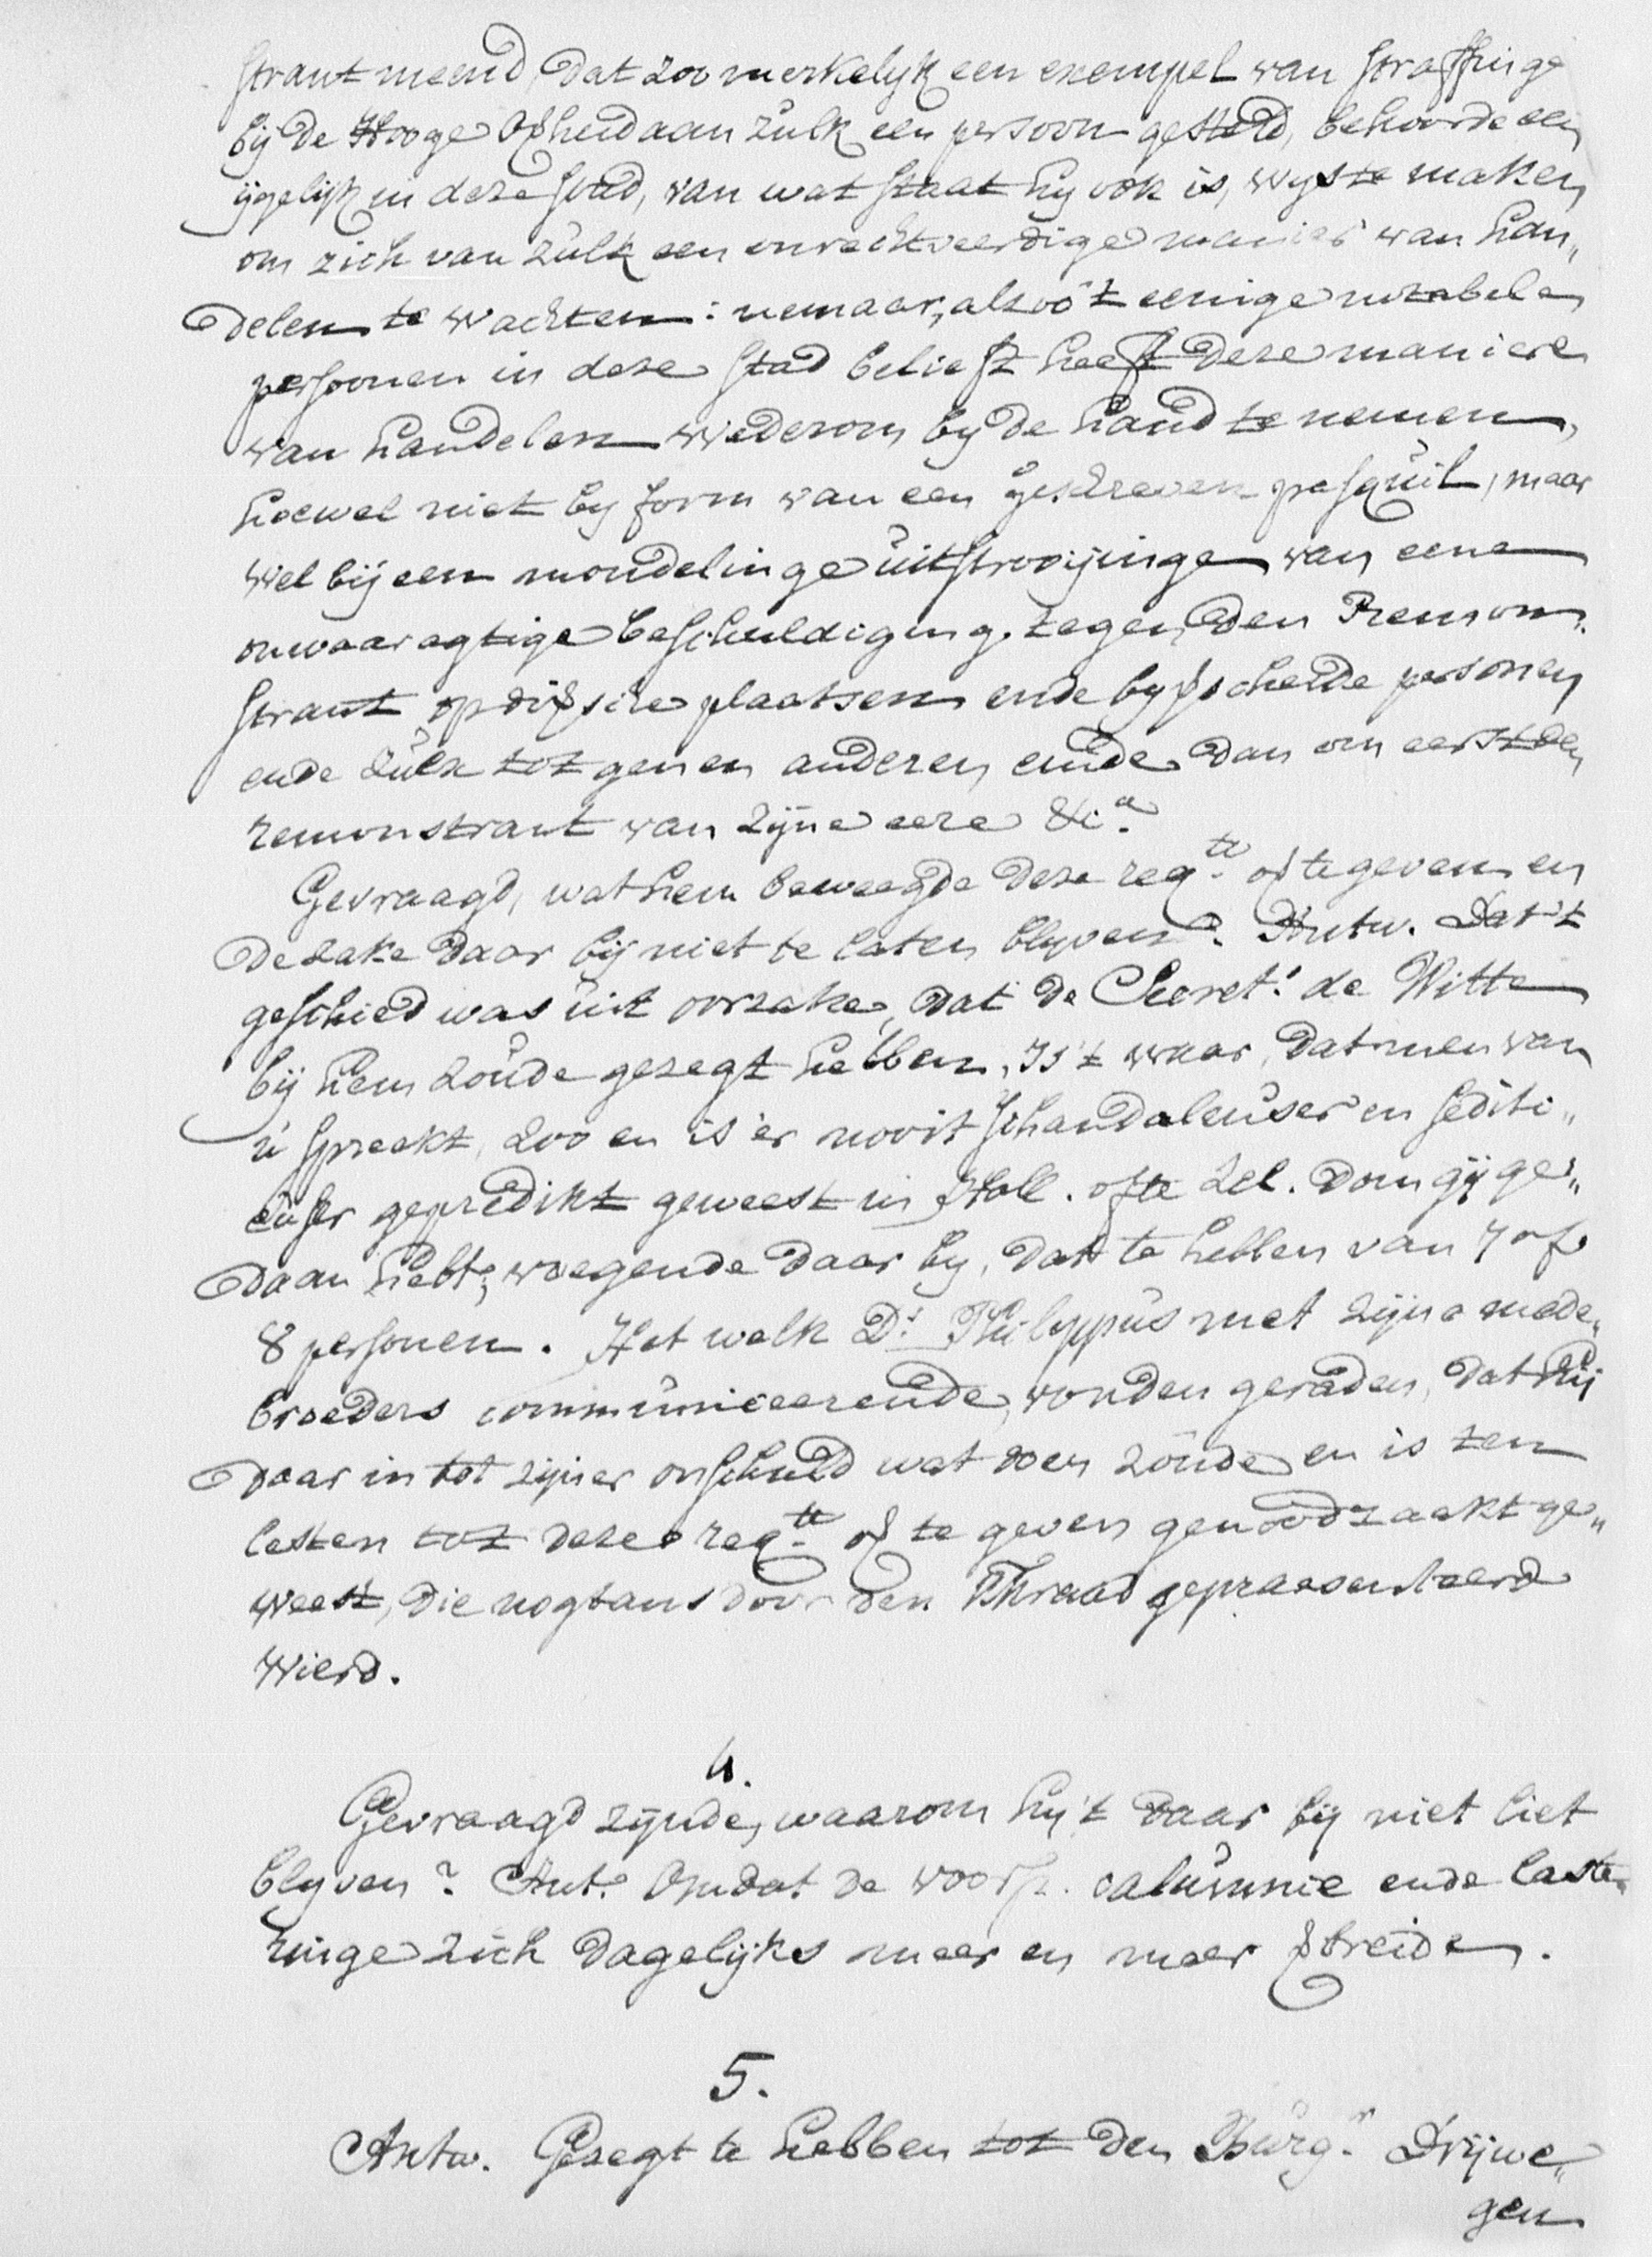 strant meend, dat zoo merkelyk een exempel van straffinge
bij de Hooge Ovheid aan zulk een persoon gesteld, behoorde een
ijgelijk in deze stad, van wat staat hij ook is, wys te maken
om zich van zulk een onrechtveerdige manier van han„
delen te wachten: nemaar, alzoo 't eenige notabele
persoonen in deze stad belieft heeft deze maniere
van handelen wederom by de hand te nemen,
hoewel niet by form van een geschreven pasquil, maar
wel bij een mondelinge uitstrooijinge van eene
onwaaragtige beschuldiging. tegen den Remon„
strant op divsche plaatsen ende by vscheide personen
ende zulx tot genen anderen einde dan om eerst den
remonstrant van zijne eere &c.a
Gevraagd, wat hem beweegde deze reqte. of te geven en
de zake daar bij niet te laten blyven? Antw. Dat 't
geschied was uit oorzake, dat de Secret.s de Witte
bij hem zoude gezegt hebben, Is 't waar, dat men van
u spreekt, zoo en is 'er nooit schandaleuser en sediti„
euser gepredikt geweest in Holl. ofte Zel. dan gij ge„
daan hebt; voegende daar by, dat te hebben van 7 of
8 personen. Het welk D.s Philyppus met zijne mede„
broeders communiceerende, vonden geraden, dat hij
daar in tot zijner onschuld wat doen zoude en is ten
lesten tot deze reqte. of te geven genoodzaakt ge„
weest, die nogtans door den Thraad gepraesenteerd
wierd.
4.
Gevraagd zijnde, waarom hy 't daar bij niet liet
blyven? Ant. Omdat de voors. calumnie ende laste„
ringe zich dagelijks meer en meer vbreide.
5.
Antw. Gezegt te hebben tot den Burg.r Drijwe„
gen